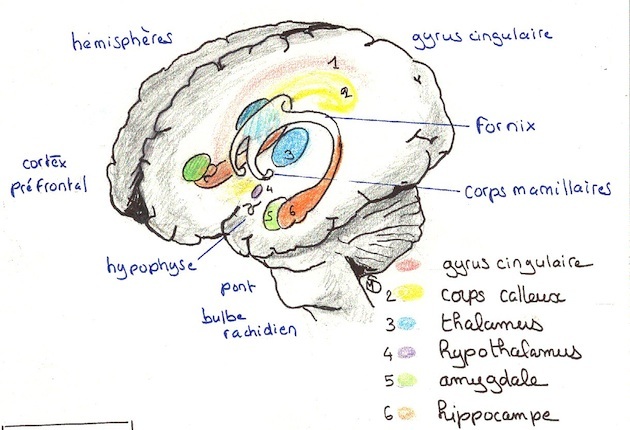 hémisphères
gyrus cingulaire
1
2
fornix
cortex
préfrontal
3
4
corps mamillaires
5
6
6
hypophyse
pont
bulbe
rachidien
gyrus cingulaire
2 corps calleux
3 thalamus
4 hypothalamus
5 amygdale
6 hippocampe